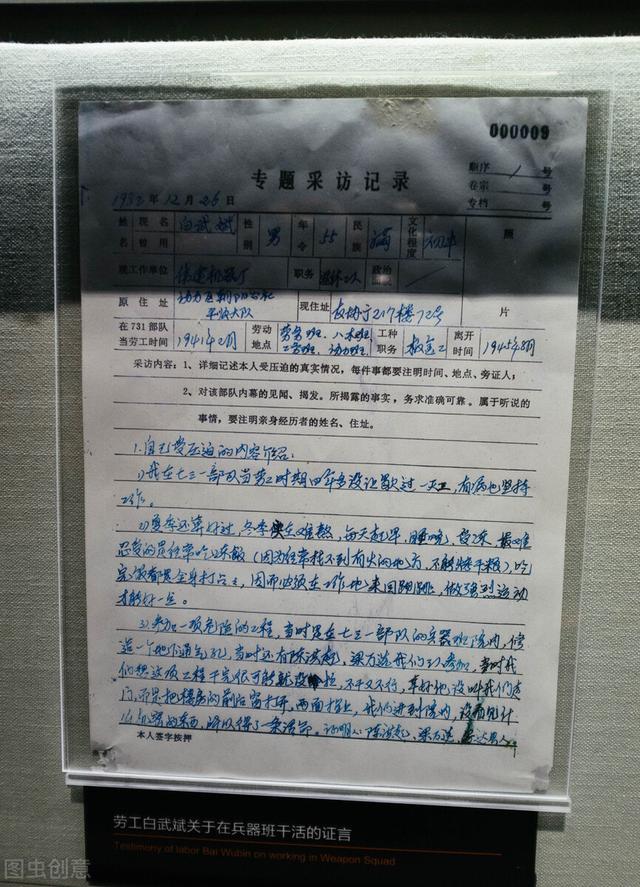 000009
专题采访记录
顺序 1 号
卷宗 号
专档 号
1982年12月26日
姓名 现名 白武斌 性别 男 年令 55 民族 满 文化程度 初中 照片
曾用
现工作单位 职务 政治
原住址 动力区朝阳公社平房大队 现住址 友协宁217楼72号
在731部队当劳工时间 1941年2月 劳动地点 劳务班、八木班、工务班、动力班 工种职务 离开时间 1945年8月
采访内容：1、详细记述本人受压迫的真实情况，每件事都要注明时间、地点、旁证人；
2、对该部队内幕的见闻、揭发。所揭露的事实，务求准确可靠。属于听说的
事情，要注明亲身经历者的姓名、住址。
1.自己受压迫的内容介绍：
1)我在七三一部队当劳工时期四年多没让歇过一天，有病也坚持
工作。
2)夏季还算好过，冬季实在难熬，每天起早，睡晚，受凉，最难
忍受的是经常吃凉饭（因为经常找不到有火的地方，不能烤干粮），吃
完饭都是全身打，因而必须在工作地来回跑跳，做强烈运动
才能好一点。
3)参加一项危险的工程，当时是在七三一部队的兵器班院内，修
造一个地下通气孔，当时还有陈洪起，梁万选我们3人参加，当时我
们想这项工程干完很可能就没，不干又不行，幸好他没叫我们走
门，而是把楼房的前后窗打开，两面挡上，我们进到院内，没看见什
么的东西，所以得了一条活命。证明人：陈洪起，梁万选
本人签字按押
劳工白武斌关于在兵器班干活的证言
Testimony of labor Bai Wubin on working in Weapon Squad
图虫创意